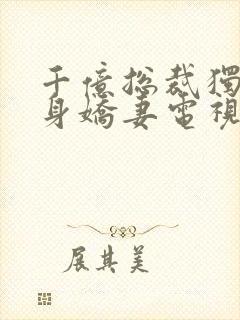 千億總裁獨
身嬌妻電視
展其美